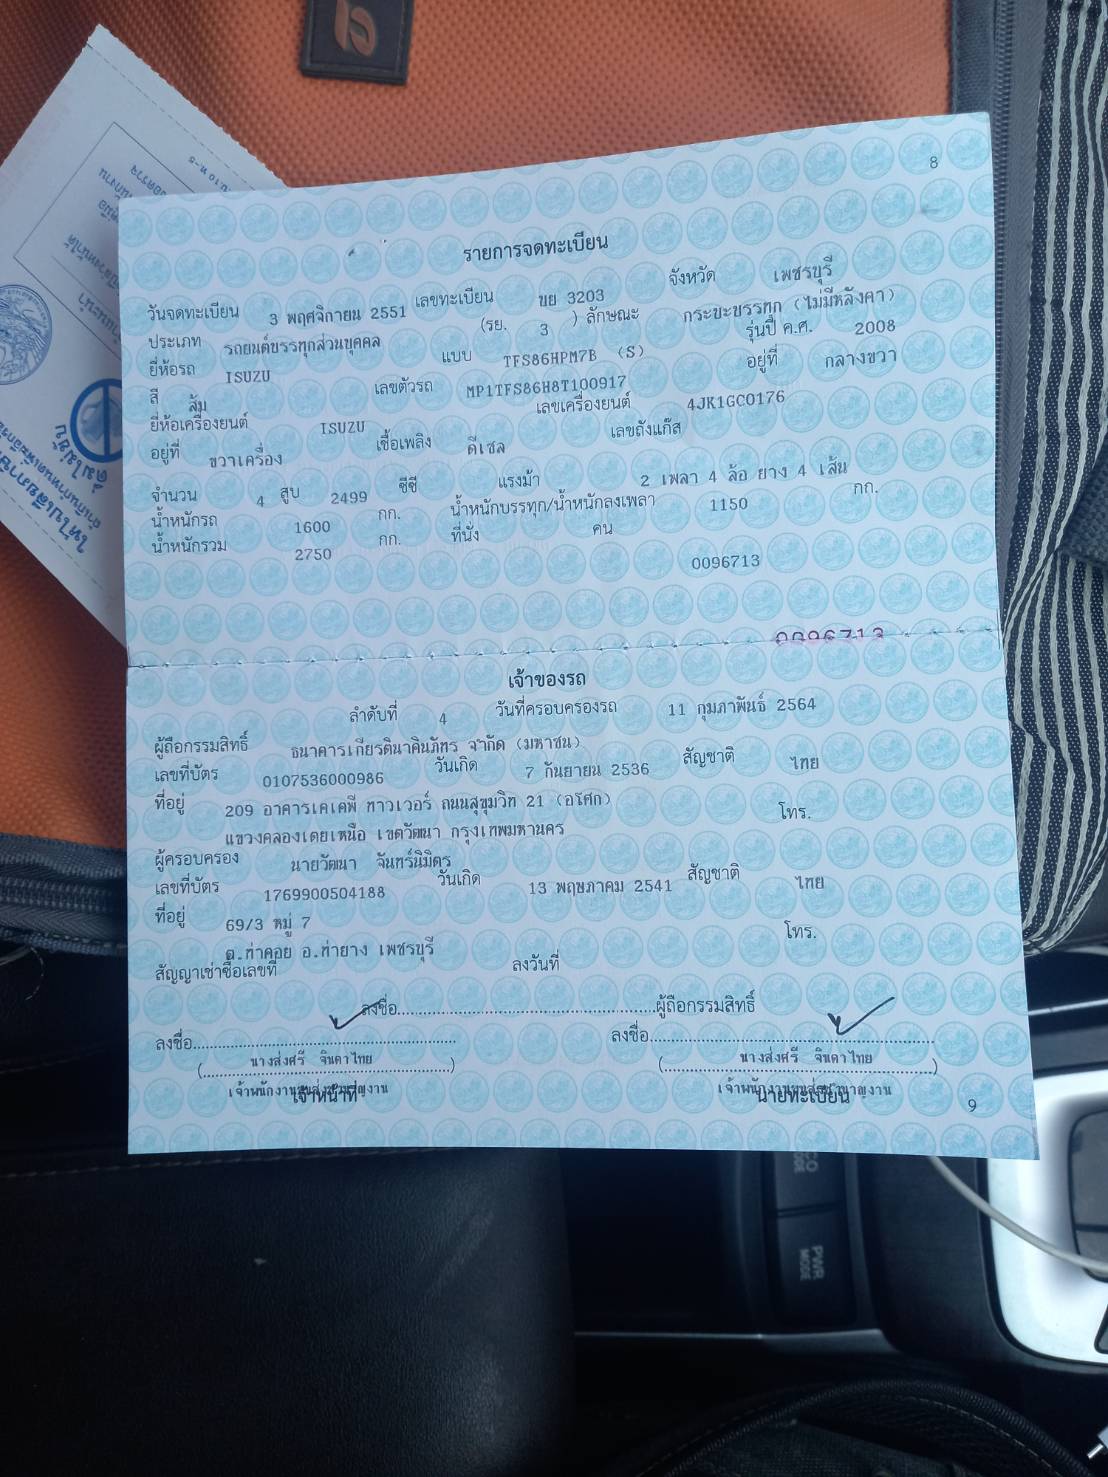 8
รายการจดทะเบียน
วันจดทะเบียน 3 พฤศจิกายน 2551 เลขทะเบียน ขย 3203 จังหวัด เพชรบุรี
ประเภท รถยนต์บรรทุกส่วนบุคคล (รย. 3 ) ลักษณะ กระบะบรรทุก (ไม่มีหลังคา)
ยี่ห้อรถ ISUZU แบบ TFS86HPM7B (S) รุ่นปี ค.ศ. 2008
สี ส้ม เลขตัวรถ MP1TFS86H8T100917 อยู่ที่ กลางขวา
ยี่ห้อเครื่องยนต์ ISUZU เลขเครื่องยนต์ 4JK1GC0176
อยู่ที่ ขวาเครื่อง เชื้อเพลิง ดีเซล เลขถังแก๊ส
จำนวน 4 สูบ 2499 ซีซี แรงม้า 2 เพลา 4 ล้อ ยาง 4 เส้น
น้ำหนักรถ 1600 กก. น้ำหนักบรรทุก/น้ำหนักลงเพลา 1150 กก.
น้ำหนักรวม 2750 กก. ที่นั่ง คน
0096713
0096713
เจ้าของรถ
ลำดับที่ 4 วันที่ครอบครองรถ 11 กุมภาพันธ์ 2564
ผู้ถือกรรมสิทธิ์ ธนาคารเกียรตินาคินภัทร จำกัด (มหาชน)
เลขที่บัตร 0107536000986 วันเกิด 7 กันยายน 2536 สัญชาติ ไทย
ที่อยู่ 209 อาคารเคเคพี ทาวเวอร์ ถนนสุขุมวิท 21 (อโศก) โทร.
แขวงคลองเตยเหนือ เขตวัฒนา กรุงเทพมหานคร
ผู้ครอบครอง นายวัฒนา จันทร์นิมิตร
เลขที่บัตร 1769900504188 วันเกิด 13 พฤษภาคม 2541 สัญชาติ ไทย
ที่อยู่ 69/3 หมู่ 7
ต.ท่าคอย อ.ท่ายาง เพชรบุรี โทร.
สัญญาเช่าซื้อเลขที่ ลงวันที่
ลงชื่อ....................ผู้ถือกรรมสิทธิ์
ลงชื่อ.................... ลงชื่อ....................
(นางส่งศรี จินดาไทย) (นางส่งศรี จินดาไทย)
เจ้าพนักงานขนส่งชำนาญงาน เจ้าพนักงานขนส่งชำนาญงาน
เจ้าหน้าที่ นายทะเบียน
9
PWR
MODE